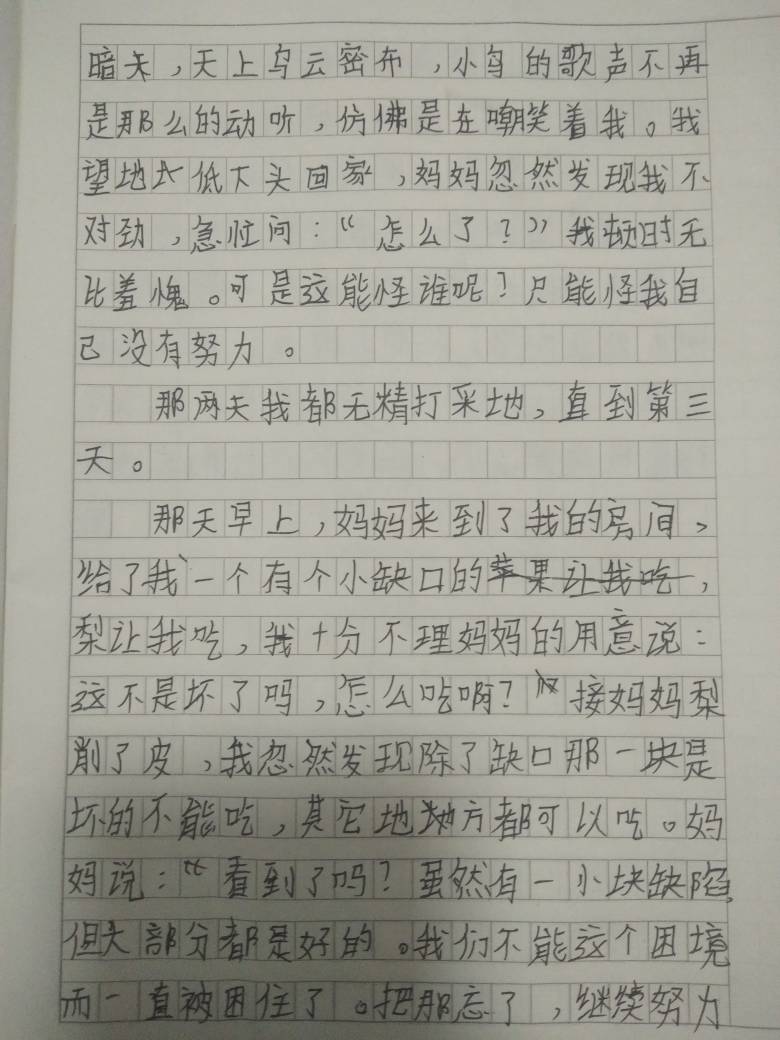 暗天，天上乌云密布，小鸟的歌声不再
是那么的动听，仿佛是在嘲笑着我。我
望地低下头回家，妈妈忽然发现我不
对劲，急忙问：“怎么了？”我顿时无
比羞愧。可是这能怪谁呢？只能怪我自
己没有努力。
那两天我都无精打采地，直到第三
天。
那天早上，妈妈来到了我的房间，
给了我一个有个小缺口的苹果让我吃，
梨让我吃，我十分不理妈妈的用意说：
这不是坏了吗，怎么吃啊？”接妈妈梨
削了皮，我忽然发现除了缺口那一块是
坏的不能吃，其它地方都可以吃。妈
妈说：“看到了吗？虽然有一小块缺陷，
但大部分都是好的。我们不能这个困境
而一直被困住了。把那忘了，继续努力